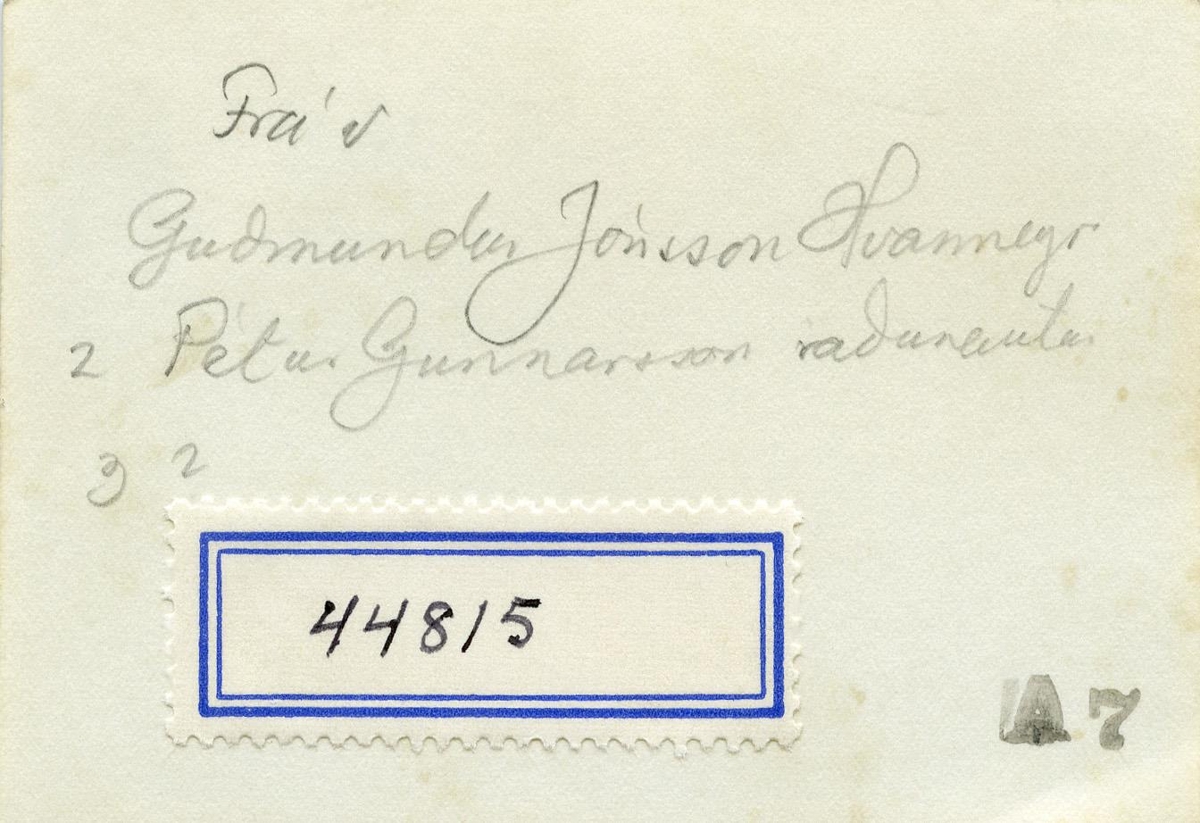 Frá v
Guðmundur Jónsson Hvanneyr
2 Pétur Gunnarsson raðunautur
3 2
44815
A 7